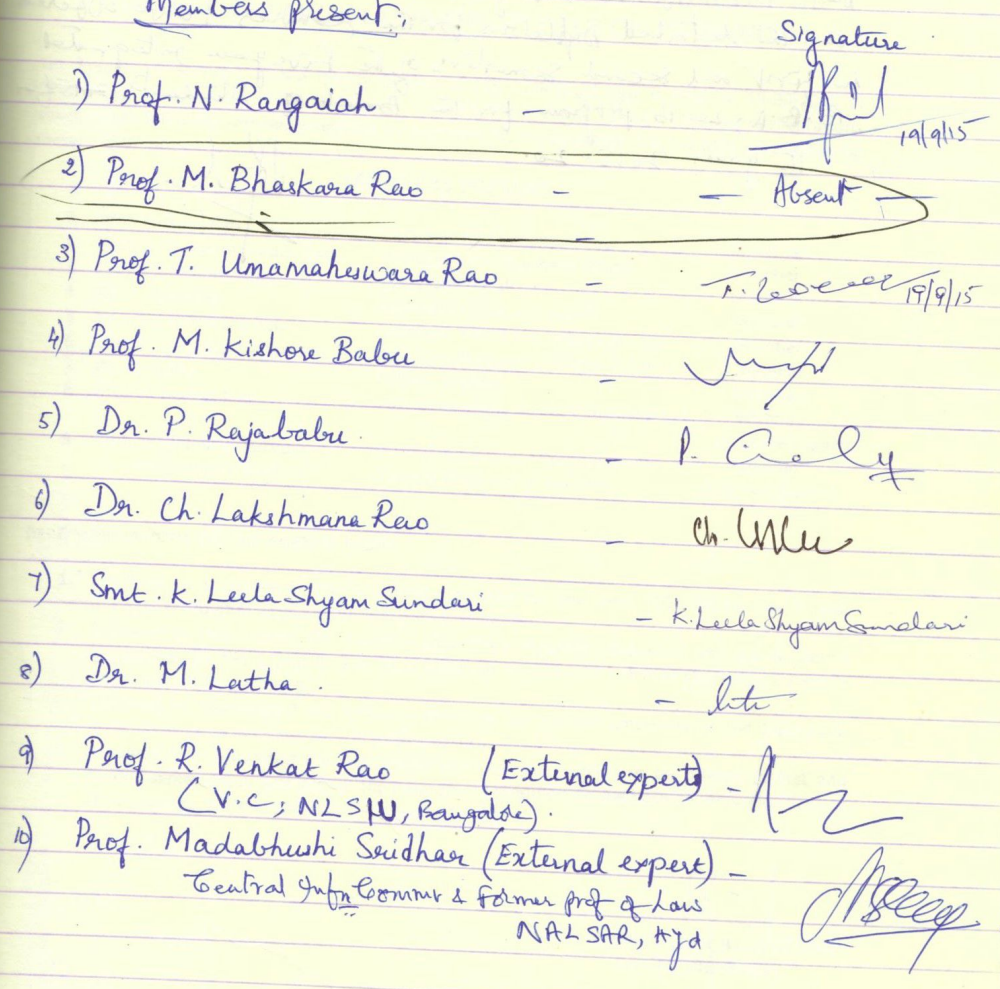 Members present:
Signature
1) Prof. N. Rangaiah - 19/9/15
2) Prof. M. Bhaskara Rao - - Absent -
3) Prof. T. Umamaheswara Rao - T. 19/9/15
4) Prof. M. Kishore Babu -
5) Dr. P. Rajababu - P.
6) Dr. Ch. Lakshmana Rao - Ch.
7) Smt. K. Leela Shyam Sundari - K. Leela Shyam Sundari
8) Dr. M. Latha . -
9) Prof. R. Venkat Rao (External expert) -
(V.C; NLSIU, Bangalore).
10) Prof. Madabhushi Sridhar (External expert) -
Central Infn Commr & Former prof of Law
NALSAR, Hyd